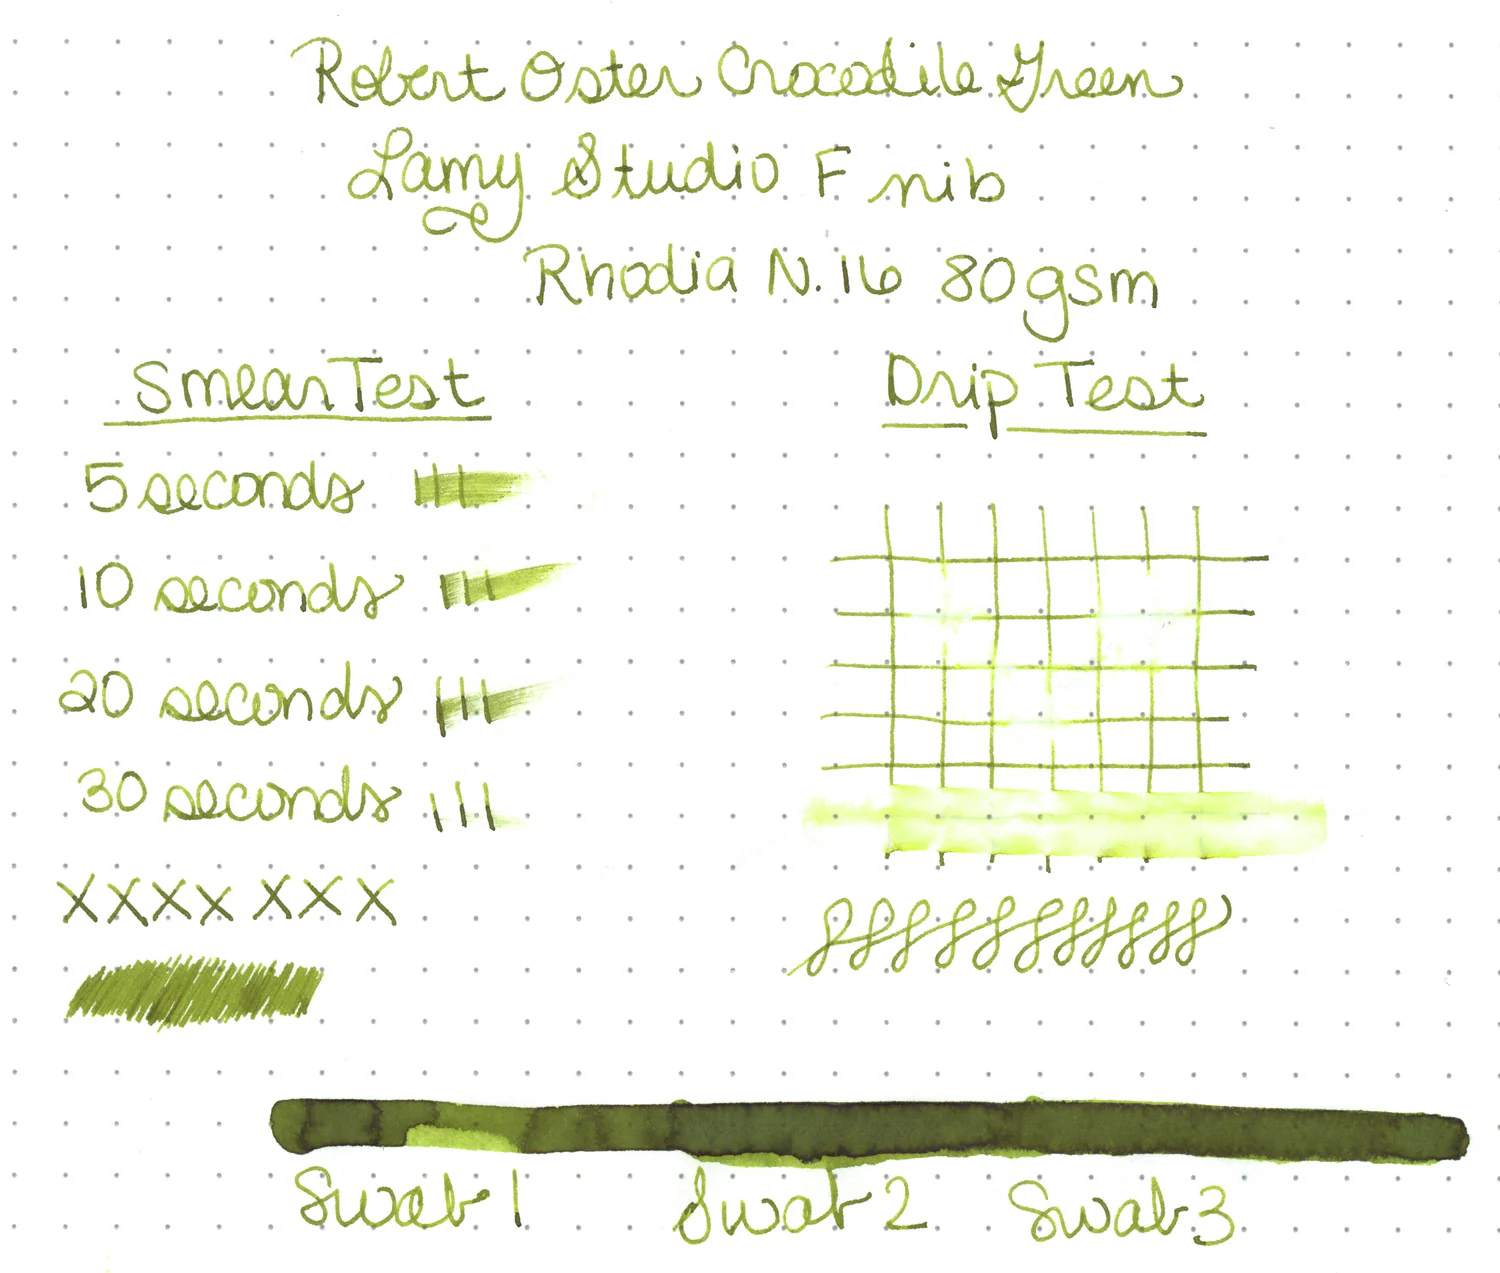 Robert Oster Crocodile Green
Lamy Studio F nib
Rhodia N.16 80gsm
Smear Test
5 seconds
10 seconds
20 seconds
30 seconds
xxxx xxx
Drip Test
Swab 1 Swab 2 Swab 3